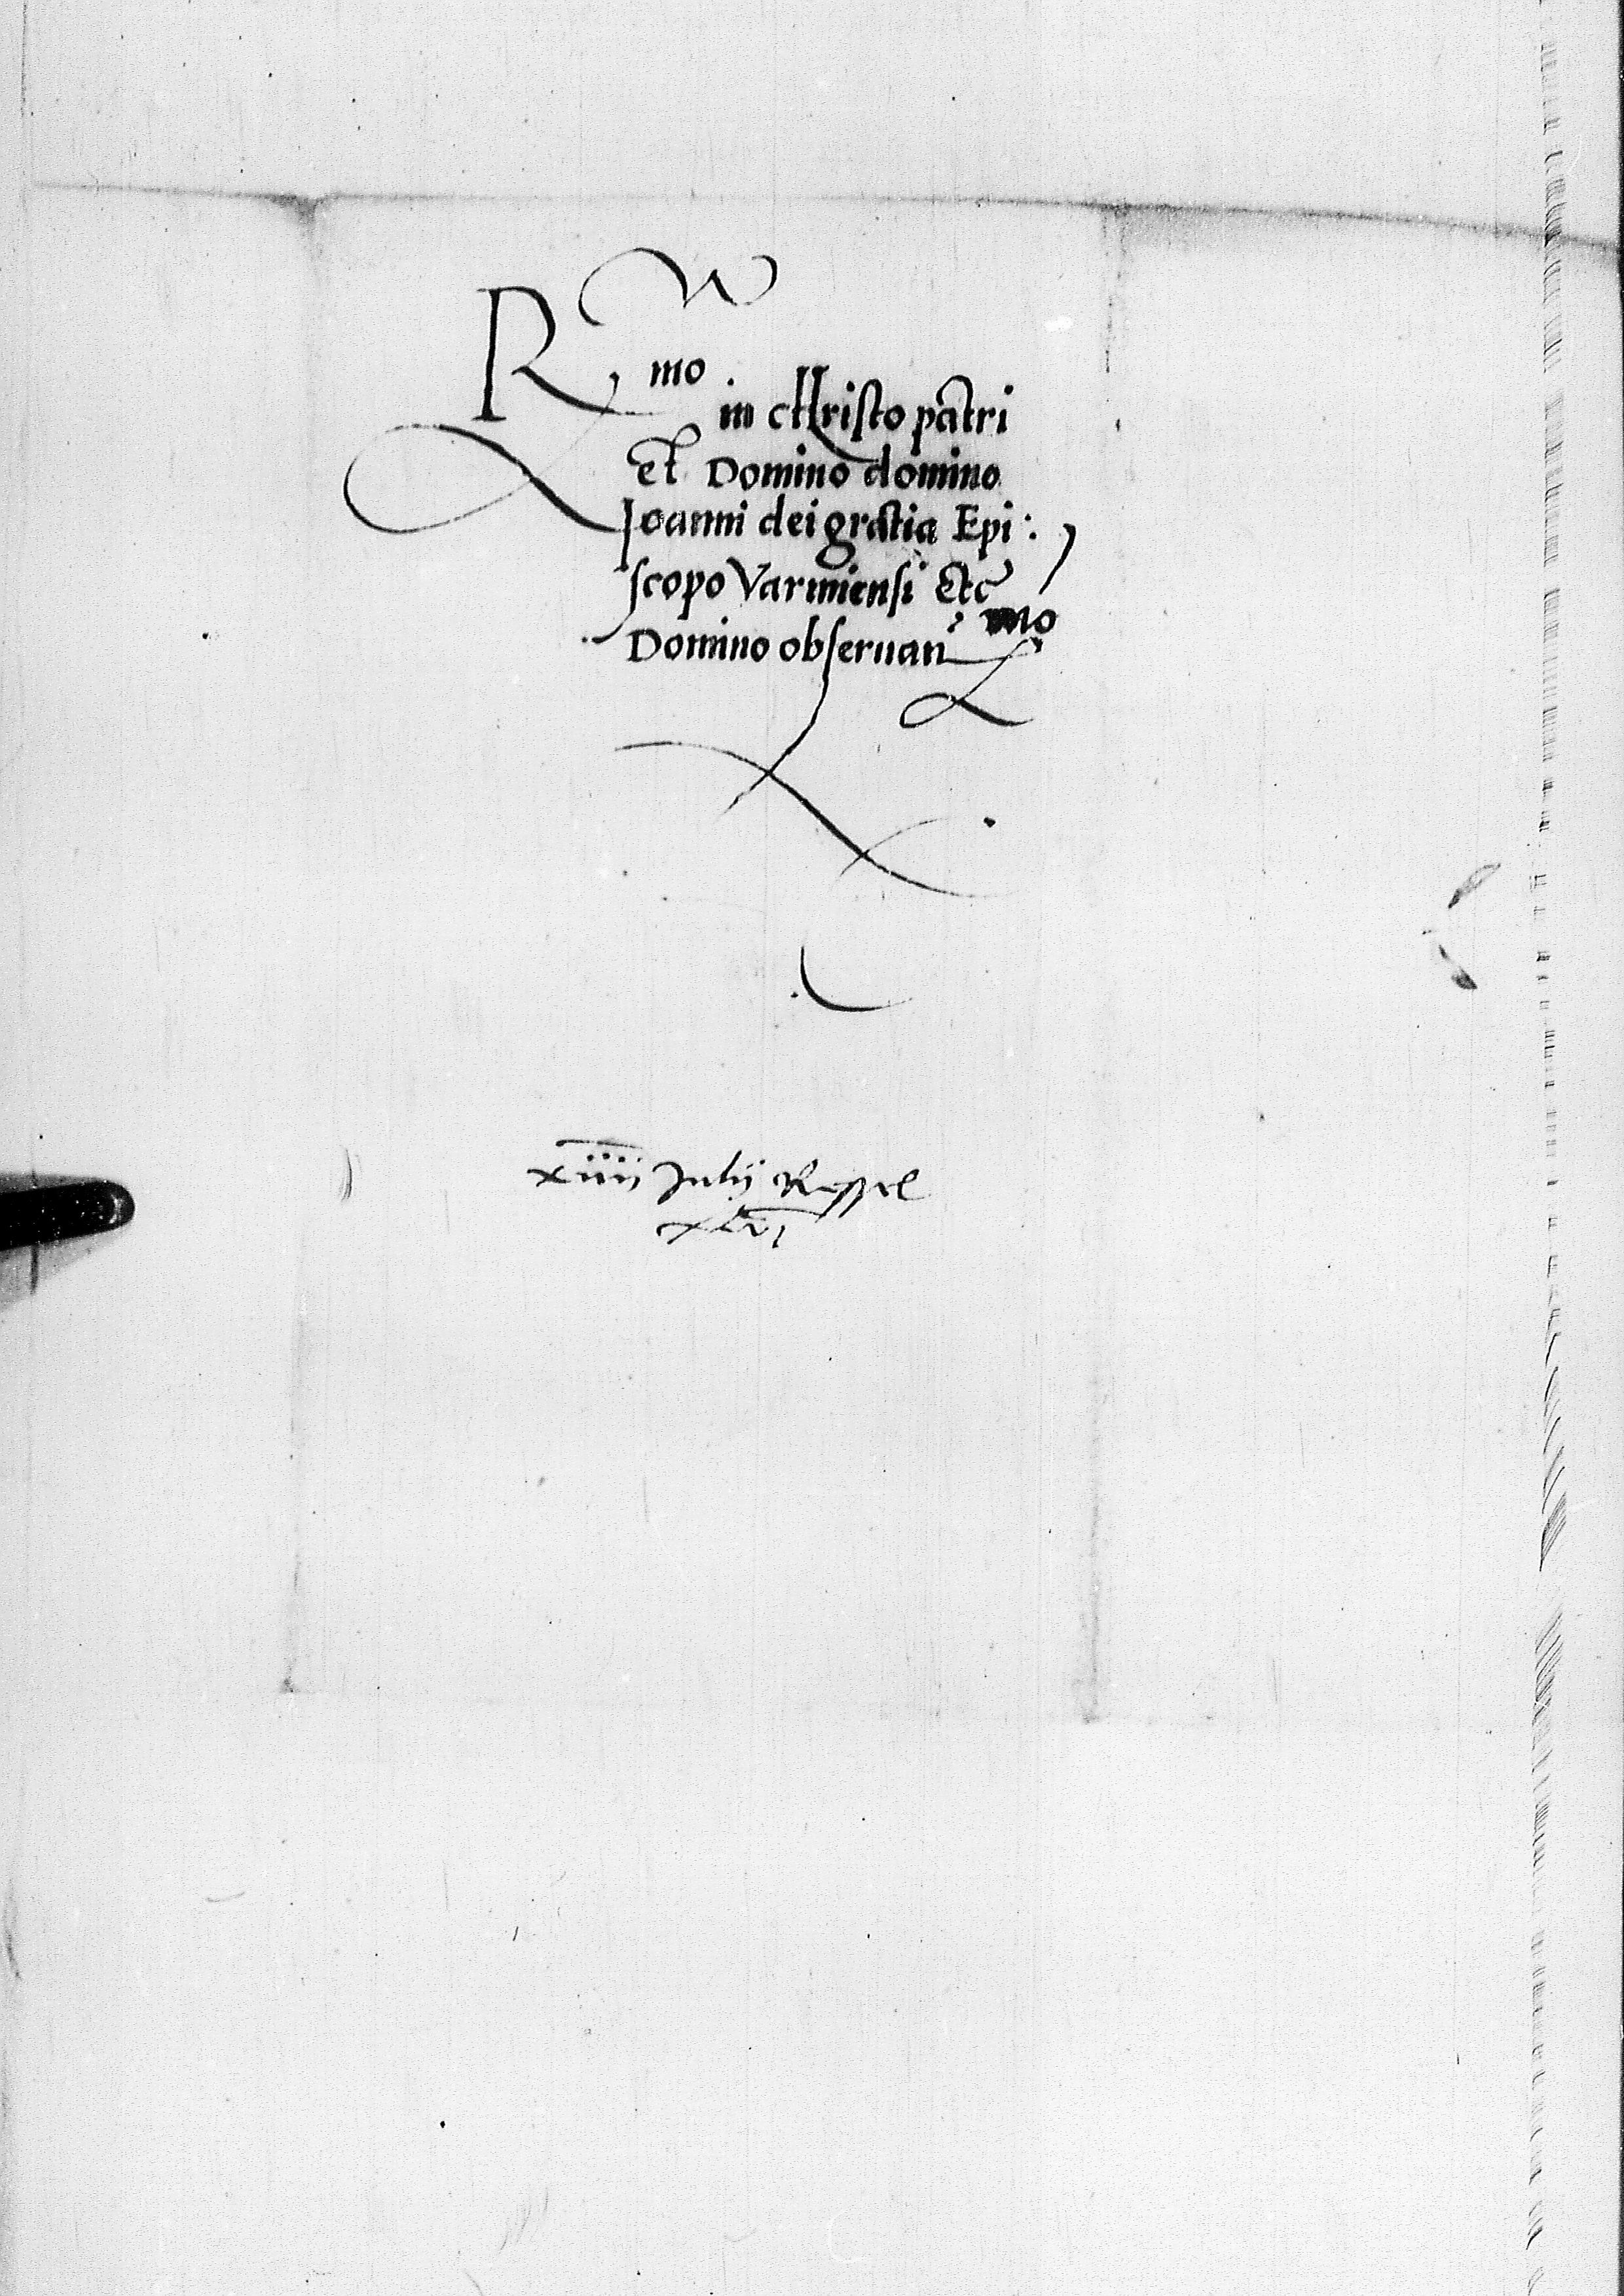 Rmo
in cHristo patri
et Domino domino
Joanni dei gratia Epi:
scopo Varmiensi Etc
Domino obseruanmo
xiiii Julij Ressel
xlvi